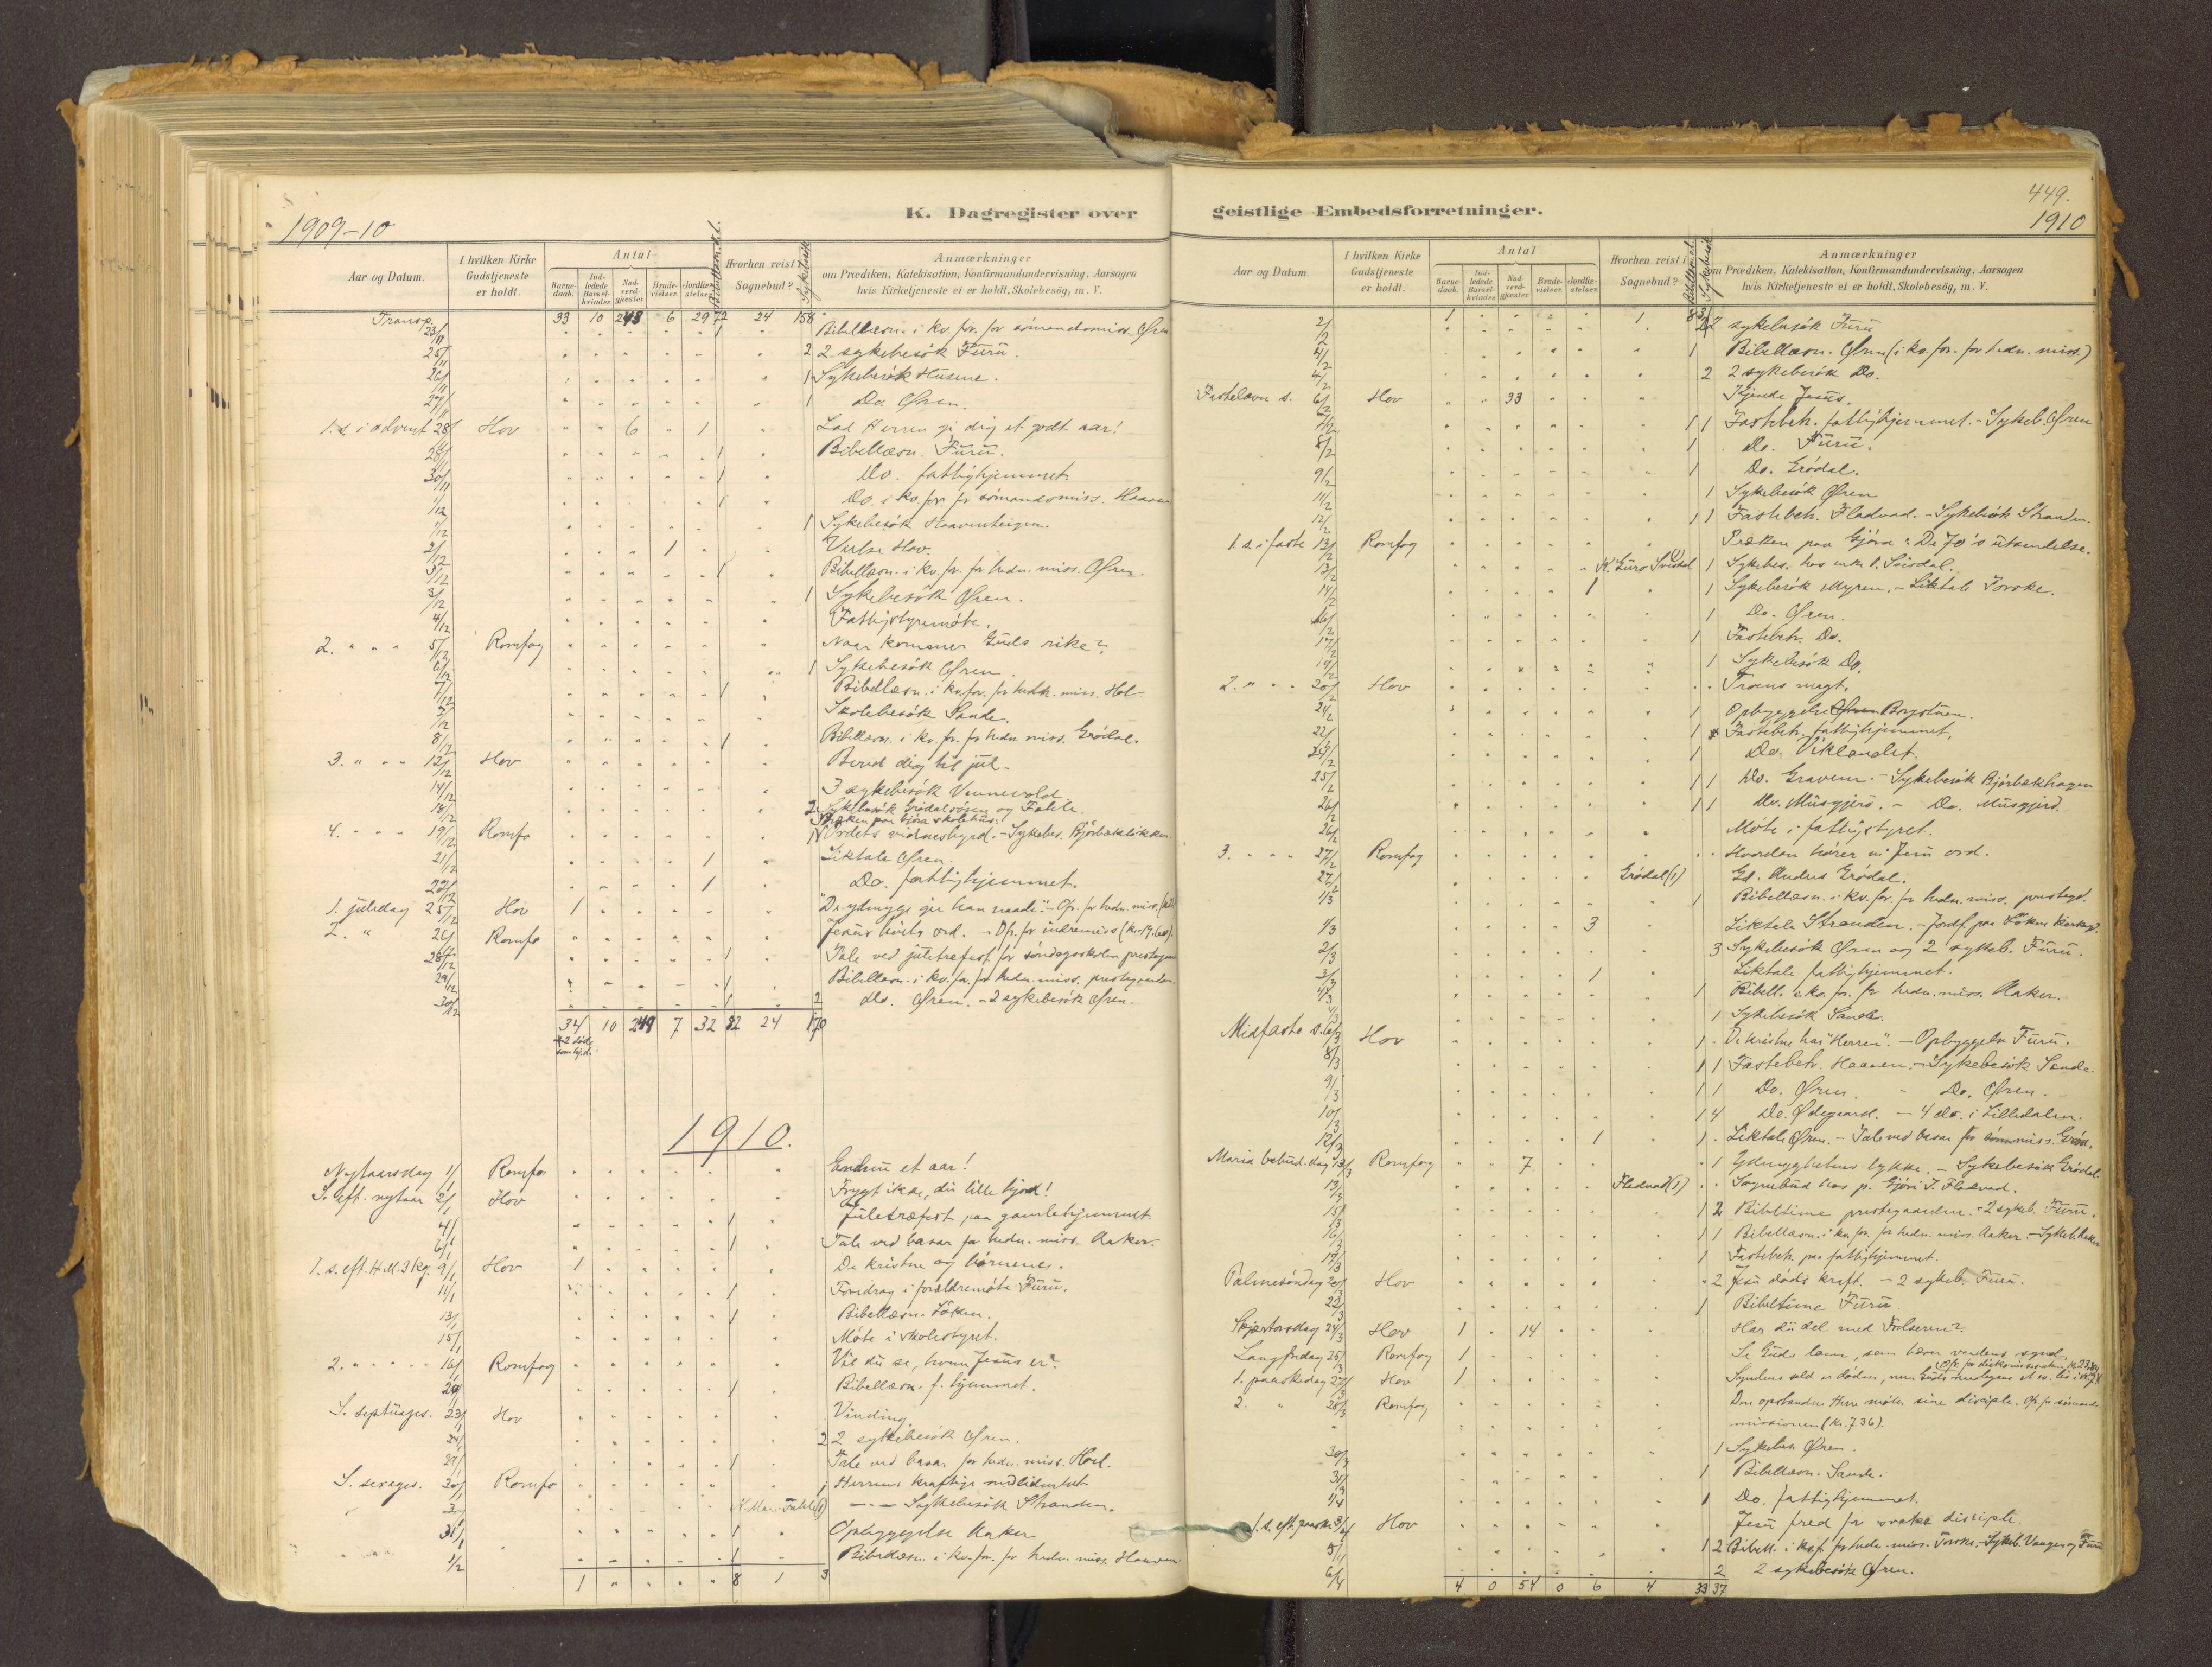 1909-10
K. Dagregister over
Aar og Datum.
I hvilken Kirke Gudstjeneste er holdt.
Antal
Barne-daab.
Ind-ledede Barsel-kvinder.
Nad-verd-gjester.
Brude-vielser.
Jordfæ-stelser.
Hvorhen reist i Sognebud?
Sykebesök
Anmærkninger
om Prædiken, Katekisation, Konfirmandundervisning, Aarsagen
hvis Kirketjeneste ei er holdt, Skolebesög, m. V.
Transp. 33 10 248 6 29 72 24 158
23/11 1 Bibellæsn. i kv. for. for sömandsmiss. Øren
25/11 2 2 sykebesök Furu.
26/11 1 Sykebesök Husene.
27/11 1 Do. Øren.
1. s. i advent 28/11 Hov 6 1 Lad Herren gi dig et godt aar!
28/11 1 Bibellæsn. Furu.
30/11 1 Do. fattighjemmet.
1/12 1 Do. i kv. for. for sömandsmiss. Haaven
1/12 1 Sykebesök
2/12 1 Vielse Hov.
3/12 1 Bibellæsn. i kv. for. for hedn. miss. Øren.
3/12 1 Sykebesök Øren.
4/12 Fattigstyremöte.
2. " " " 5/12 Romfog Naar kommer Guds rike?
6/12 1 Sykebesök Øren.
7/12 1 Bibellæsn. i kv. for. for hedn. miss. Hol
7/12 Skolebesök Sande.
8/12 1 Bibellæsn. i kv. for. for hedn. miss. Grödal.
3. " " " 12/12 Hov Bered dig til jul.
14/12 3 sykebesök Vennevold
18/12 2 Sykebesök og Fahle.
Præken paa Gjöra skolehus.
4. " " " 19/12 Romfo 1 Ordets vidnesbyrd. - Sykebes.
21/12 1 Liktale Øren.
22/12 1 Do. fattighjemmet.
1. juledag 25/12 Hov 1 "De ydmyge gir han naade." - Of. for hedn. miss.
2. " 26/12 Romfo Jesu ord. - Of. for indremiss (kr. 19.60).
28/12 1 Tale ved juletrefest for söndagsskolen prestegaarden
29/12 1 Bibellæsn. i kv. for. for hedn. miss. prestegaarden
30/12 1 2 Do. Øren. - 2 sykebesök Øren.
34 10 249 7 32 82 24 170
+ 2 döde
1910.
Nytaarsdag 1/1 Romfo Endnu et aar!
S. eft. nytaar 2/1 Hov Frygt ikke, du lille hjord!
4/1 1 Juletræfest paa gamlehjemmet.
6/1 1 Tale ved basar for hedn. miss. Aaker.
1. s. eft. H. 3 kg. 9/1 Hov 1 De kristne og börnene.
11/1 1 Foredrag i forældremöte Furu.
13/1 1 Bibellæsn. Löken.
15/1 Möte i skolestyret.
2. " " " " 16/1 Romfog Vil du se, hvem Jesus er?
20/1 1 Bibellæsn. f. hjemmet.
S. septuages. 23/1 Hov Vinding.
24/1 2 2 sykebesök Øren.
29/1 1 Tale ved basar for hedn. miss. Hoel.
S. sexages. 30/1 Romfo 1 Herrens kraftige
30/1 K. Mari Fahle (1) - - Sykebesök Stranden.
31/1 1 Opbyggelse Aaker
1/2 1 Bibellæsn. i kv. for. for hedn. miss. Haaven
1 " " " " 8 1 3
449.
1910
geistlige Embedsforretninger.
Aar og Datum
I hvilken Kirke Gudstjeneste er holdt.
Antal
Barne-daab.
Ind-ledede Barsel-kvinder.
Nad-verd-gjester.
Brude-vielser.
Jordfæ-stelser.
Hvorhen reist i Sognebud?
Sykebesök
Anmærkninger
om Prædiken, Katekisation, Konfirmandundervisning, Aarsagen
hvis Kirketjeneste ei er holdt, Skolebesög, m. V.
2/2 1 1 8 2 2 sykebesök Furu
2/2 1 Bibellæsn. Øren (i kv. for. for hedn. miss.)
4/2 2 2 sykebesök Do.
Fastelavn s. 6/2 Hov 33 Kjende Jesus.
7/2 1 1 Fastebetr. fattighjemmet. - Sykeb. Øren
8/2 1 Do. Furu.
9/2 1 Do. Grödal.
11/2 1 Sykebesök Øren
12/2 1 1 Fastebetr. Fladvad. - Sykebesök Stranden.
1. s. i faste 13/2 Romfog Præken paa Gjöra: De 70's utsendelse.
13/2 K. Guro Svisdal (1) 1 Sykebes. hos enke
14/2 1 1 Sykebesök Myren. - Liktale Torske.
16/2 1 Do. Øren.
17/2 1 Fastebetr. Do.
19/2 1 Sykebesök Do.
2. " " " 20/2 Hov Troens magt.
21/2 1 Opbyggelse Borgstuen.
22/2 1 Fastebetr. fattighjemmet.
1 Do. Viklandet
25/2 1 1 Do. Gravem. - Sykebesök Bjørbækhagen
26/2 1 1 Do. Musgjerd. - Do. Musgjerd.
26/2 Möte i fattigstyret.
3. " " " 27/2 Romfog Hvordan hörer vi Jesu ord.
27/2 Grödal (1) Gd. Anders Grödal.
1/3 1 Bibellæsn. i kv. for. for hedn. miss. prestegd.
1/3 3 Liktale Stranden. - Jordf. paa Löken kirkegd.
2/3 3 Sykebesök Øren og 2 sykeb. Furu.
3/3 1 Liktale fattighjemmet.
4/3 1 Bibell. i kv. for. for hedn. miss. Aaker.
1 Sykebesök Sande.
Midfaste s. 6/3 Hov 1 De kristne har "Herren". - Opbyggelse Furu.
8/3 1 1 Fastebetr. Haaven. - Sykebesök Sande.
9/3 1 1 Do. Øren. - Do. Øren.
10/3 1 4 Do. Ødegaard. - 4 do. i Lilledalen.
12/3 1 1 Liktale Øren. - Tale ved basar for sömmiss. Gröd.
Maria bebud. dag 13/3 Romfog 7 1 Ydmyghetens lykke. - Sykebesök Grödal.
13/3 Fladvad (1) Sognebud hos p. Gjöri J. Fladvad.
15/3 1 2 Bibeltime prestegaarden. - 2 sykeb. Furu.
16/3 1 1 Bibellæsn. i kv. for. for hedn. miss. Aaker. - Sykeb. Aaker
17/3 1 Fastebetr. paa fattighjemmet.
Palmesöndag 20/3 Hov 2 Jesu döds kraft. - 2 sykeb. Furu.
22/3 1 Bibeltime Furu
Skjærtorsdag 24/3 Hov 1 14 Har du del med Frelseren?
Langfredag 25/3 Romfog 1 Se Guds lam, som bærer verdens synd.
1. paaskedag 27/3 Hov 1 Syndens sold er döden, men Guds
2. " 28/3 Romfog Den opstandne Herre möter sine disciple. Of. for sömands-
missionen (kr. 7.36).
30/3 1 Sykebes. Øren.
31/3 1 Bibellæsn. Sande.
1/4 1 Do. fattighjemmet.
1. s. eft. paaske 3/4 Hov Jesu fred for disciple.
1 2 Bibell. i kv. f. for hedn. miss. Torske. - Sykeb. Vangen og Furu
6/4 2 2 sykebesök Øren.
4 0 54 0 6 4 33 37